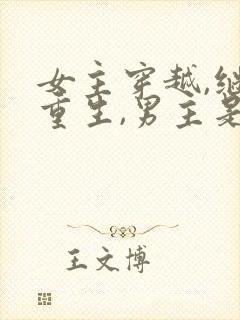 女主穿越,继
重生,男主是
王文博